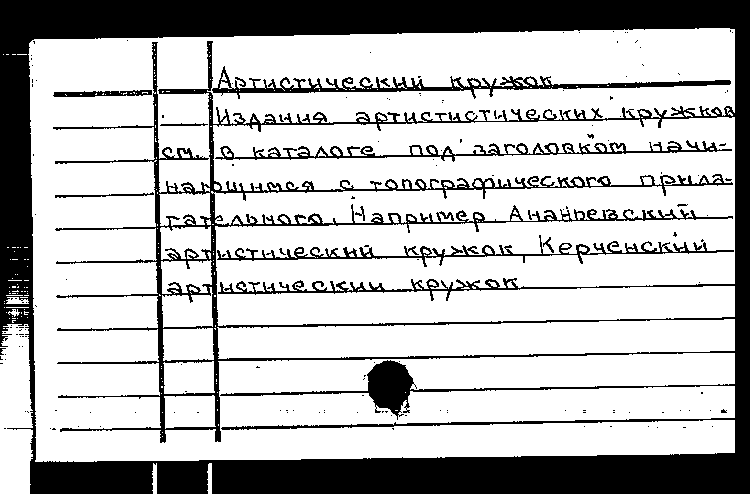 Артистический кружок
Издания артистистических кружков
см. в каталоге под заголовком начи-
нающимся с топографического прила-
гательного. Например Ананьевский
артистический кружок, Керченский
артистический кружок